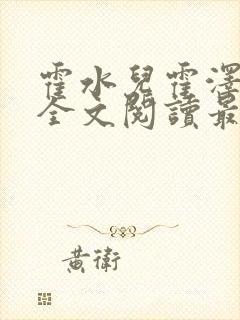 霍水兒霍澤
全文閱讀最
黃衛